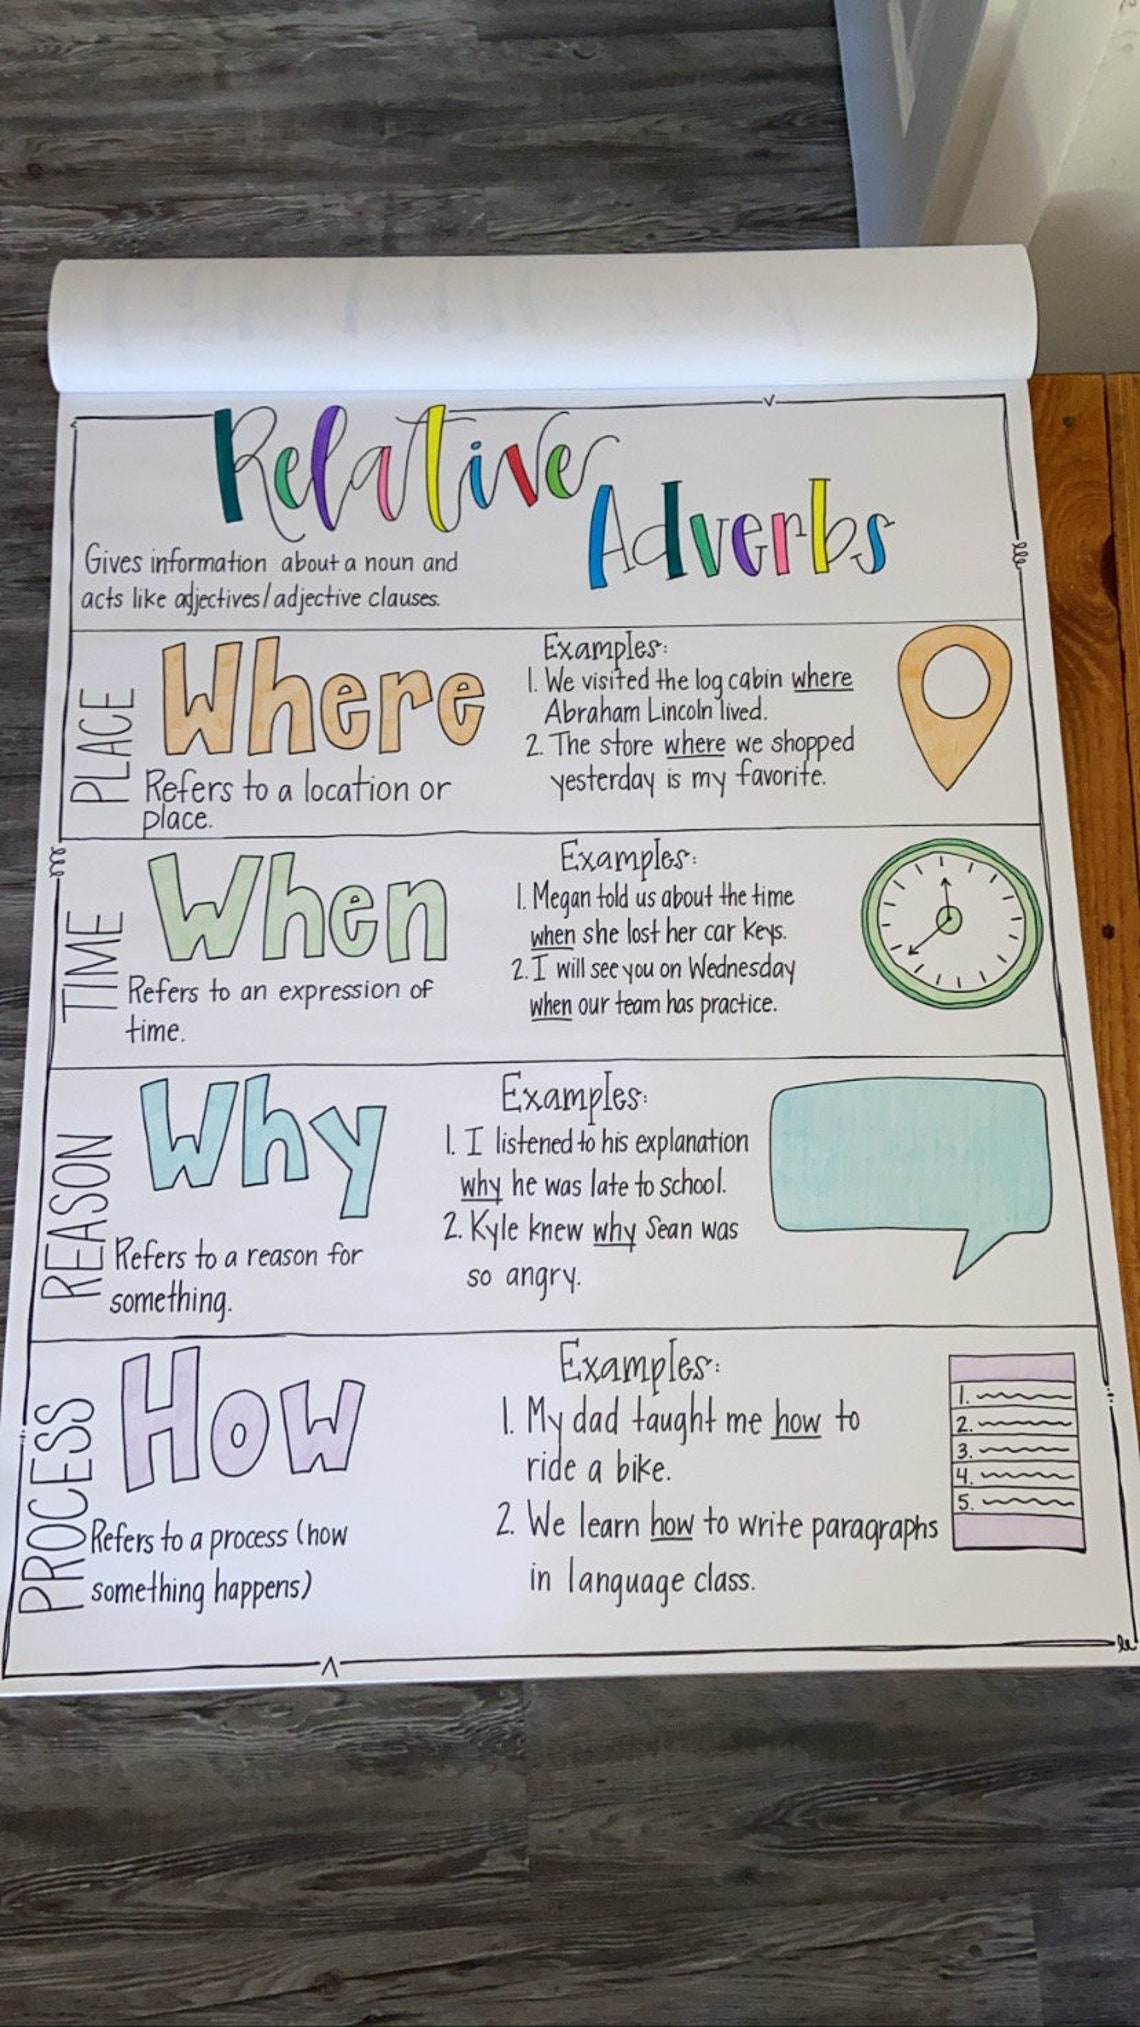 Relative
Adverbs
Gives information about a noun and
acts like adjectives/adjective clauses.
PLACE
Where
Refers to a location or
place.
Examples:
1. We visited the log cabin where
Abraham Lincoln lived.
2. The store where we shopped
yesterday is my favorite.
TIME
When
Refers to an expression of
time.
Examples:
1. Megan told us about the time
when she lost her car keys.
2. I will see you on Wednesday
when our team has practice.
REASON
Why
Refers to a reason for
something.
Examples:
1. I listened to his explanation
why he was late to school.
2. Kyle knew why Sean was
so angry.
PROCESS
How
Refers to a process (how
something happens)
Examples:
1. My dad taught me how to
ride a bike.
2. We learn how to write paragraphs
in language class.
1.
2.
3.
4.
5.